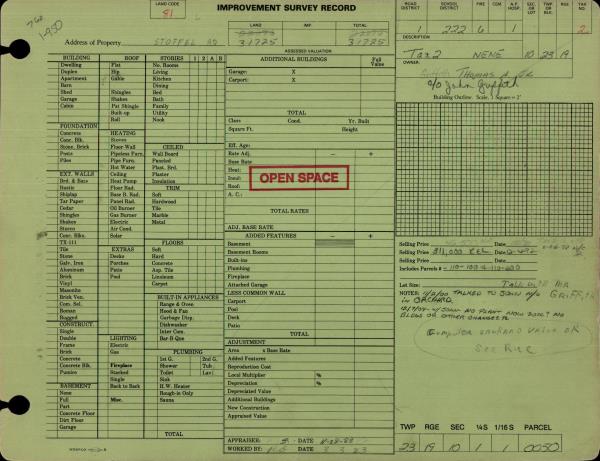 LAND CODE
81
IMPROVEMENT SURVEY RECORD
ROAD DISTRICT SCHOOL DISTRICT FIRE A.P. HOSP. SEC OR LOT RGE TAX NO
1 222 6 1 2
Address of Property STOFFEL RD
LAND IMP. TOTAL
31725 31725
ASSESSED VALUATION
DESCRIPTION
Tax 2 NENE 10 23 19
OWNER
Thomas
c/o John Griffith
Building Outline. Scale, 1 Square = 2'
BUILDING ROOF STORIES 1 2 A B
Dwelling Flat No. Rooms
Duplex Hip Living
Apartment Gable Kitchen
Barn Dining
Shed Shingles Bed
Garage Shakes Bath
Cabin Pat Shingle Family
Built-up Utility
Roll Nook
FOUNDATION
Concrete HEATING
Conc. Blk. Stoves CEILED
Stone, Brick Floor Wall Wall Board
Posts Pipeless Furn. Paneled
Piles Pipe Furn. Plast. Brd.
Hot Water Plaster
EXT. WALLS Ceiling Insulation
Brd. & Bats Heat Pump TRIM
Rustic Floor Rad. Soft
Shiplap Base B. Rad. Hardwood
Tar Paper Panel Rad. Tile
Cedar Oil Burner Marble
Shingles Gas Burner Metal
Shakes Electric
Stucco Air Cond.
Conc. Blks. Solar
TX-111 FLOORS
Tile EXTRAS Soft
Stone Decks Hard
Galv. Iron Porches Concrete
Aluminum Patio Asp. Tile
Brick Pool Linoleum
Vinyl Carpet
Masonite
Brick Ven. BUILT-IN APPLIANCES
Com. Sel. Range & Oven
Roman Hood & Fan
Rugged Garbage Disp.
CONSTRUCT. Dishwasher
Single Inter Com.
Double LIGHTING Bar-B-Que
Frame Electric
Brick Gas PLUMBING
Concrete 1st G. 2nd G.
Concrete Blk. Fireplace Shower Tub
Pumice Stacked Toilet Lav
Single Sink
BASEMENT Back to Back H.W. Heater
None Rough-in Only
Full Misc. Sauna
Part
Concrete Floor
Dirt Floor
Garage
TOTAL
ADDITIONAL BUILDINGS Full Value
Garage: X
Carport: X
TOTAL
Class Cond. Yr. Built
Square Ft. Height
Eff. Age:
Rate Adj. − +
Base Rate
Heat:
Insul:
Roof:
A. C.:
OPEN SPACE
TOTAL RATES
ADJ. BASE RATE
ADDED FEATURES − +
Basement
Basement Rooms
Built-ins
Plumbing
Fireplace
Attached Garage
LESS COMMON WALL
Carport
Pool
Deck
Patio
TOTAL
ADJUSTMENT
Area x Base Rate
Added Features
Reproduction Cost
Local Multiplier %
Depreciation %
Depreciated Value
Additional Buildings
New Construction
Appraised Value
APPRAISER: DATE
WORKED BY: DATE
Selling Price Date
Selling Price $11,000 REL Date
Selling Price Date
Includes Parcels #
Lot Size:
NOTES: TALKED TO JOHN
IN ORCHARD.
BLDG OR OTHER CHANGES
Computer orchard value OR
See Rue
TWP RGE SEC ¼S 1/16 S PARCEL
23 19 10 1 1 0050